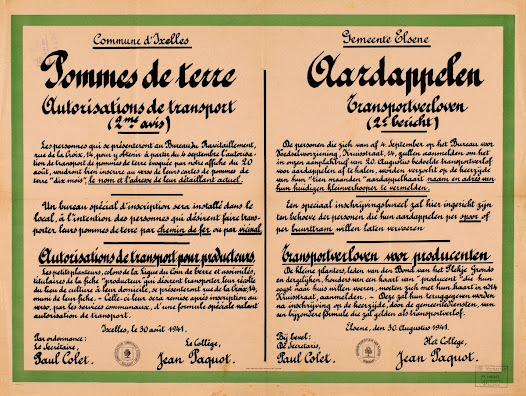 Commune d'Ixelles
Pommes de terre
Autorisations de transport
(2me avis)
Les personnes qui se présenteront au Bureau du Ravitaillement,
rue de la Croix, 14, pour y obtenir à partir du 4 septembre l'autorisa-
tion de transport de pommes de terre évoquée par notre affiche du 20
août, voudront bien inscrire au verso de leurs cartes de pommes de
terre "dix mois", le nom et l'adresse de leur détaillant actuel.
Un bureau spécial d'inscription sera installé dans ce
local, à l'intention des personnes qui désirent faire trans-
porter leurs pommes de terre par chemin de fer ou par vicinal
Autorisations de transport pour producteurs.
Les petits planteurs, colons de la Ligue du Coin de Terre et assimilés,
titulaires de la fiche "producteur" qui désirent transporter leur récolte
du lieu de culture à leur domicile, se présenteront rue de la Croix, 14,
muni de leur fiche. - Celle-ci leur sera remise après inscription au
verso, par les services communaux, d'une formule spéciale valant
autorisation de transport.
Ixelles, le 30 août 1941.
Par ordonnance:
Le Secrétaire,
Paul Colet.
Le Collège,
Jean Paquot.
Gemeente Elsene
Aardappelen
Transportverloven
(2e bericht)
De personen die zich van af 4 September op het Bureau voor
Voedselvoorziening, Kruisstraat, 14, zullen aanmelden om het
in onzen aanplakbrief van 20 Augustus bedoelde transportverlof
voor aardappelen af te halen, worden verzocht op de keerzijde
van hun "tien maanden" aardappelkaart naam en adres van
hun huidigen kleinverkooper te vermelden.
Een speciaal inschrijvingsbureel zal hier ingericht zijn
ten behoeve der personen die hun aardappelen per spoor of
per buurttram willen laten vervoeren
Transportverloven voor producenten
De kleine planters, leden van den Bond van het Stukje Gronds
en dergelijken, houders van een kaart van "producent" die hun
oogst naar huis willen voeren, moeten zich met hun kaart in 14
Kruisstraat, aanmelden. - Deze zal hun teruggegeven worden
na inschrijving op de keerzijde, door de gemeentediensten, van
een bijzondere formule die zal gelden als transportverlof.
Elsene, den 30 Augustus 1941.
Bij bevel:
De Secretaris,
Paul Colet.
Het College,
Jean Paquot.